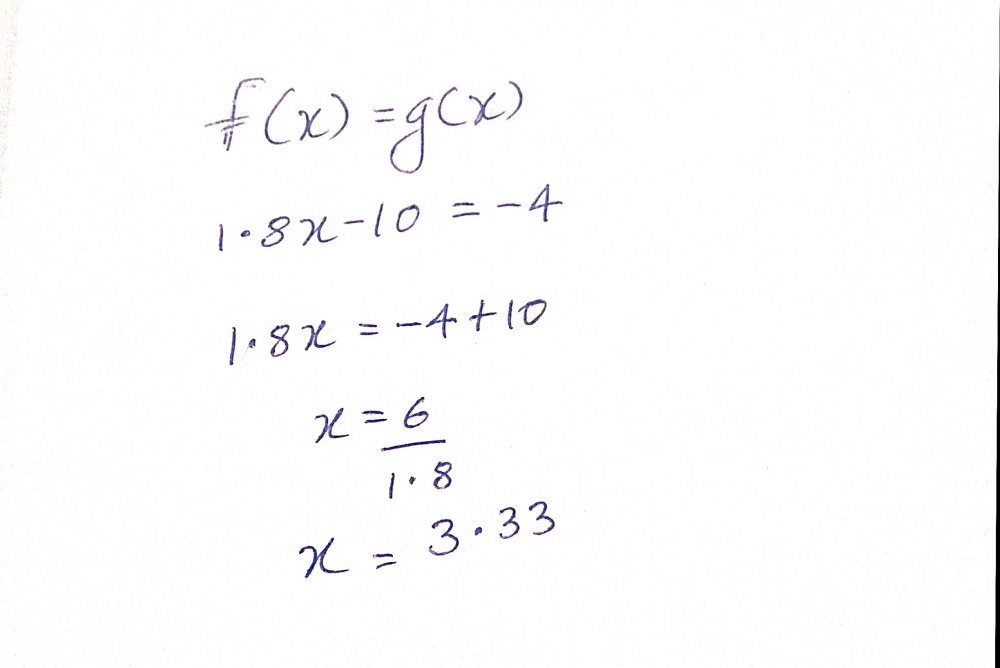 f(x) = g(x)
1.8x - 10 = -4
1.8x = -4 + 10
x = 6
1.8
x = 3.33